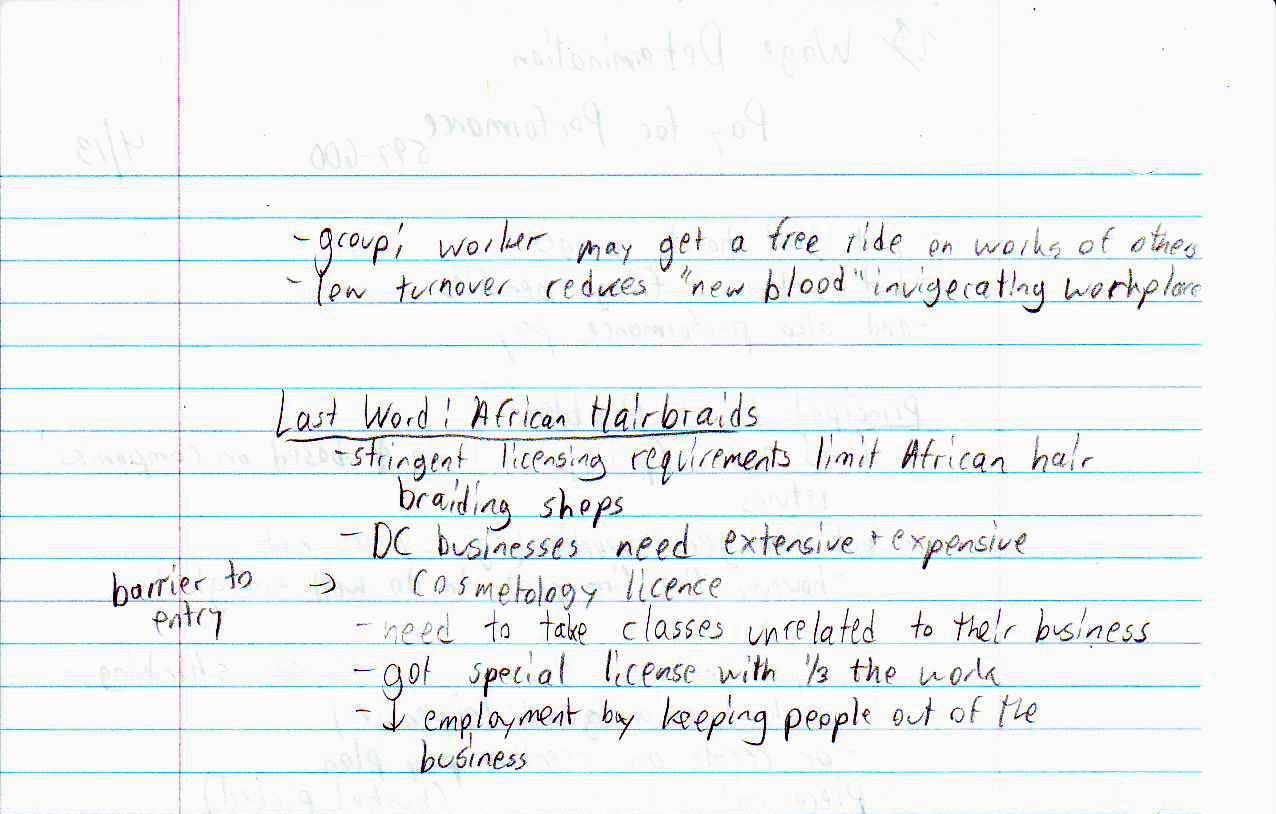 - group; worker may get a free ride on works of others
- low turnover reduces "new blood" invigerating workplace
Last Word: African Hairbraids
- stringent licensing requirements limit African hair
braiding shops
- DC businesses need extensive + expensive
barrier to entry → cosmetology licence
- need to take classes unrelated to their business
- got special license with 1/3 the work
- ↓ employment by keeping people out of the
business